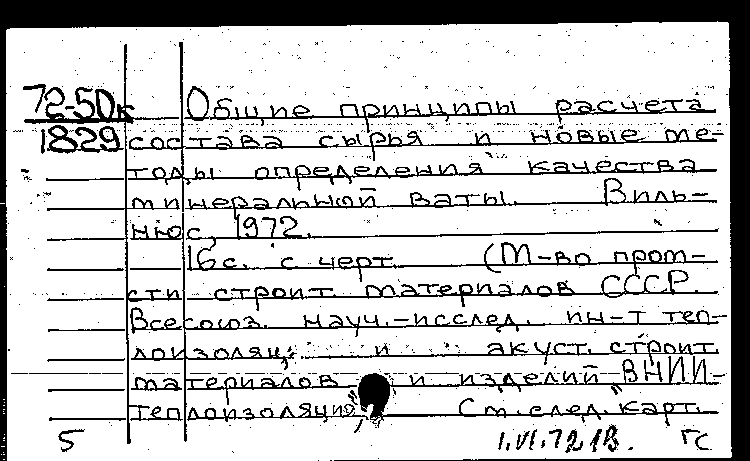 72-50к Общие принципы расчета
1829 состава сырья и новые ме-
тоды определения качества
минеральной ваты. Виль-
нюс, 1972.
16 с. с черт. (М-во пром-
сти строит. материалов СССР.
Всесоюз. науч.-исслед. ин-т теп-
лоизоляц. и акуст. строит.
материалов и изделий "ВНИИ-
теплоизоляция"). См. след. карт.
5 1.VI.72 ГС